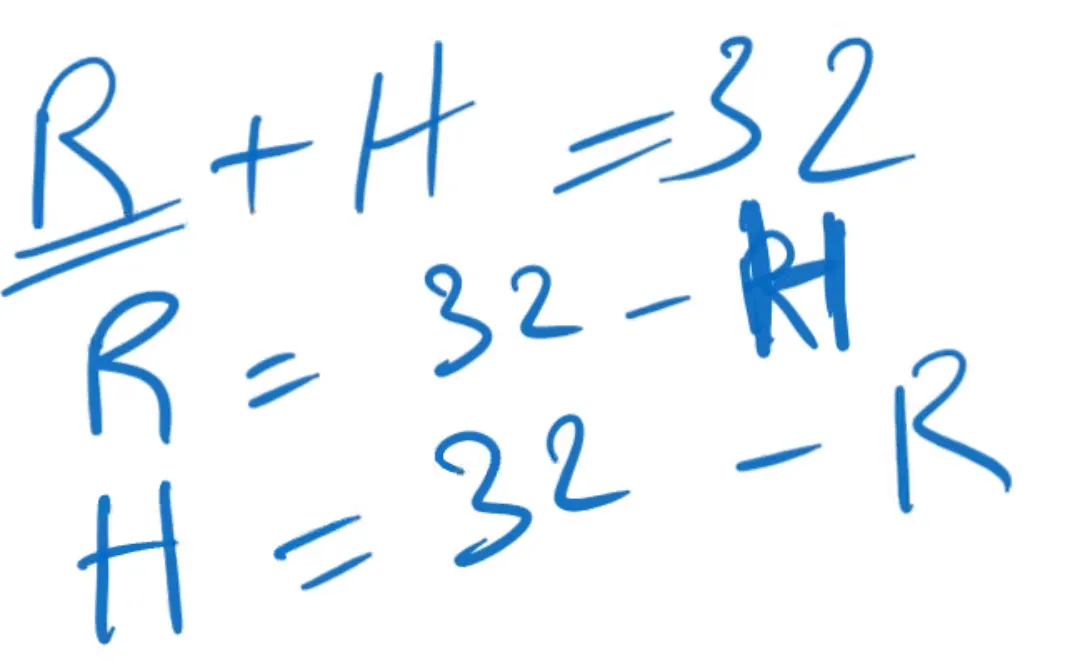 R + H = 32
R = 32 - H
H = 32 - R